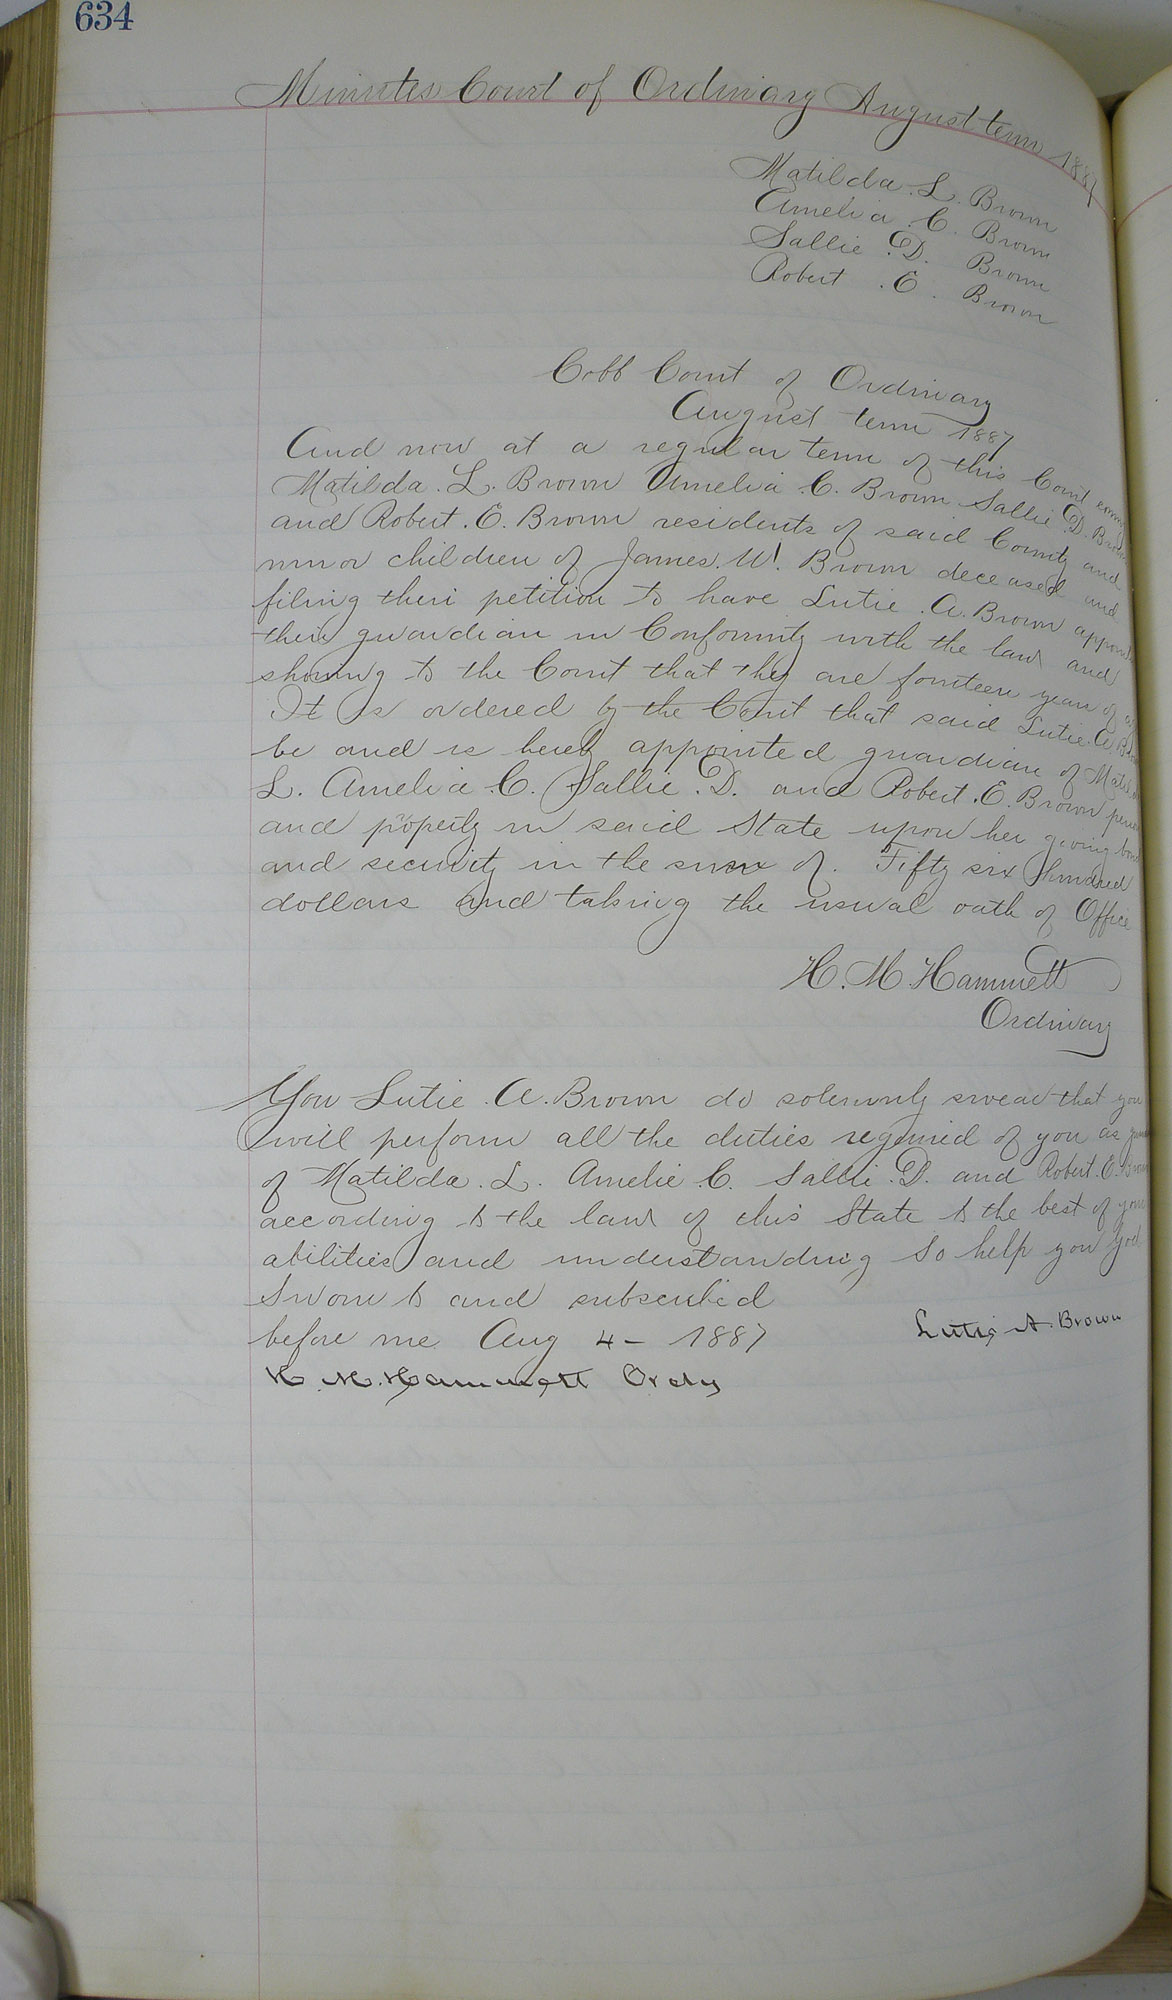 634
Minutes Court of Ordinary August term 1887
Matilda. L. Brown
Amelia. C. Brown
Sallie. D. Brown
Robert. E. Brown
Cobb Court of Ordinary
August term 1887
And now at a regular term of this Court
Matilda. L. Brown Amelia. C. Brown Sallie. D. Brown
and Robert. E. Brown residents of said County and
minor children of James. W. Brown deceased and
filing their petition to have Lutie. A. Brown
their guardian in Conformity with the law and
showing to the Court that they are fourteen years of
It is ordered by the Court that said Lutie. A
be and is hereby appointed guardian of
L. Amelia. C. Sallie. D. and Robert. E. Brown
and property in said State upon her giving bond
and security in the sum of. Fifty six hundred
dollars and taking the usual oath of Office
H. M. Hammett
Ordinary
You Lutie. A. Brown do solemnly swear that you
will perform all the duties required of you as
of Matilda. L. Amelie. C. Sallie. D. and Robert. E. Brown
according to the law of this State to the best of your
abilities and understanding So help you God
Sworn to and subscribed
before me Aug 4 - 1887
Lutie A. Brown
H. M. Hammett Ordy